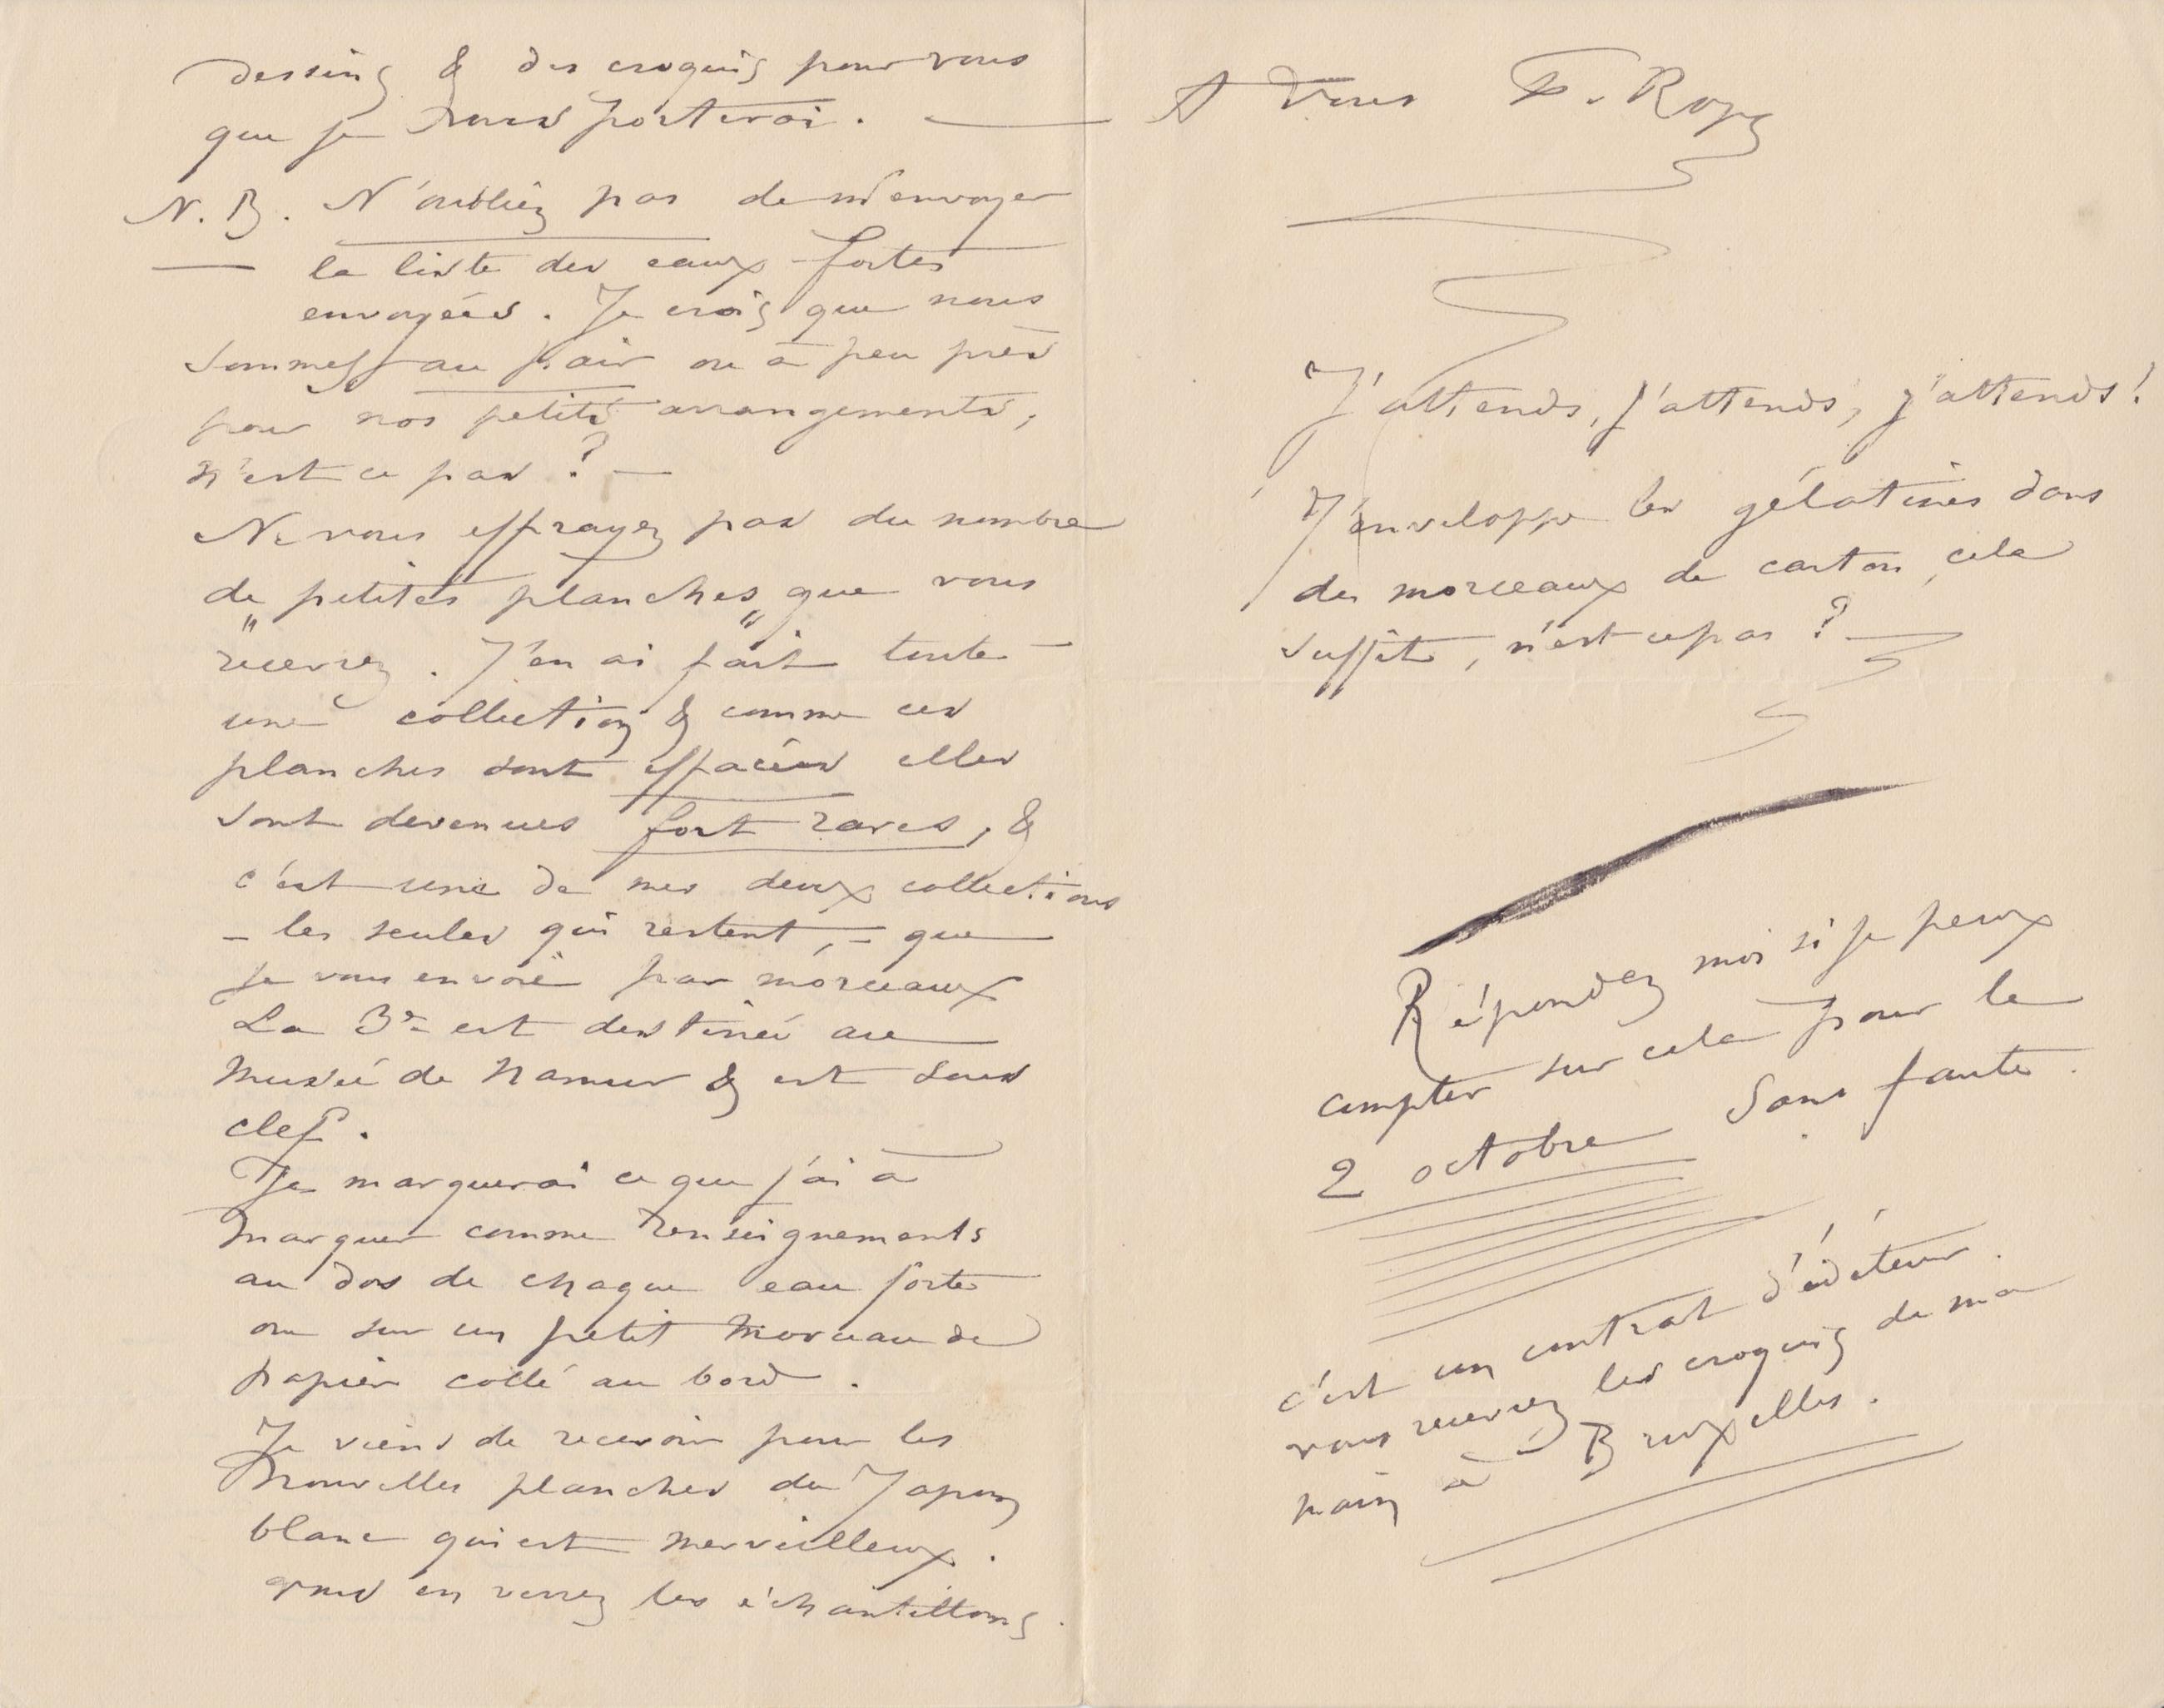 dessins & des croquis pour vous
que je vous porterai. —
N. B. N'oubliez pas de m'envoyer
— la liste des eaux-fortes
envoyées. Je crois que nous
sommes au pair ou à peu près
pour nos petits arrangements,
n'est ce pas ? —
Ne vous effrayez pas du nombre
de "petites planches" que vous
recevrez. J'en ai fait toute
une collection & comme ces
planches sont effacées elles
sont devenues fort rares, &
c'est une de mes deux collections
– les seules qui restent, – que
je vous envoie par morceaux
La 3e est destinée au
Musée de Namur & est sous
clef.
Je marquerai ce que j'ai à
marquer comme renseignements
au dos de chaque eau forte
ou sur un petit morceau de
papier collé au bord.
Je viens de recevoir pour les
nouvelles planches du Japon
blanc qui est merveilleux.
vous en verrez les échantillons.
A Vous F. Rops
J'attends, j'attends, j'attends !
J'enveloppe les gélatines dans
des morceaux de carton, cela
suffit, n'est ce pas ? —
Répondez moi si je peux
compter sur cela pour le
2 octobre Sans faute.
c'est un contrat d'éditeur.
vous recevrez les croquis de ma
main à Bruxelles.